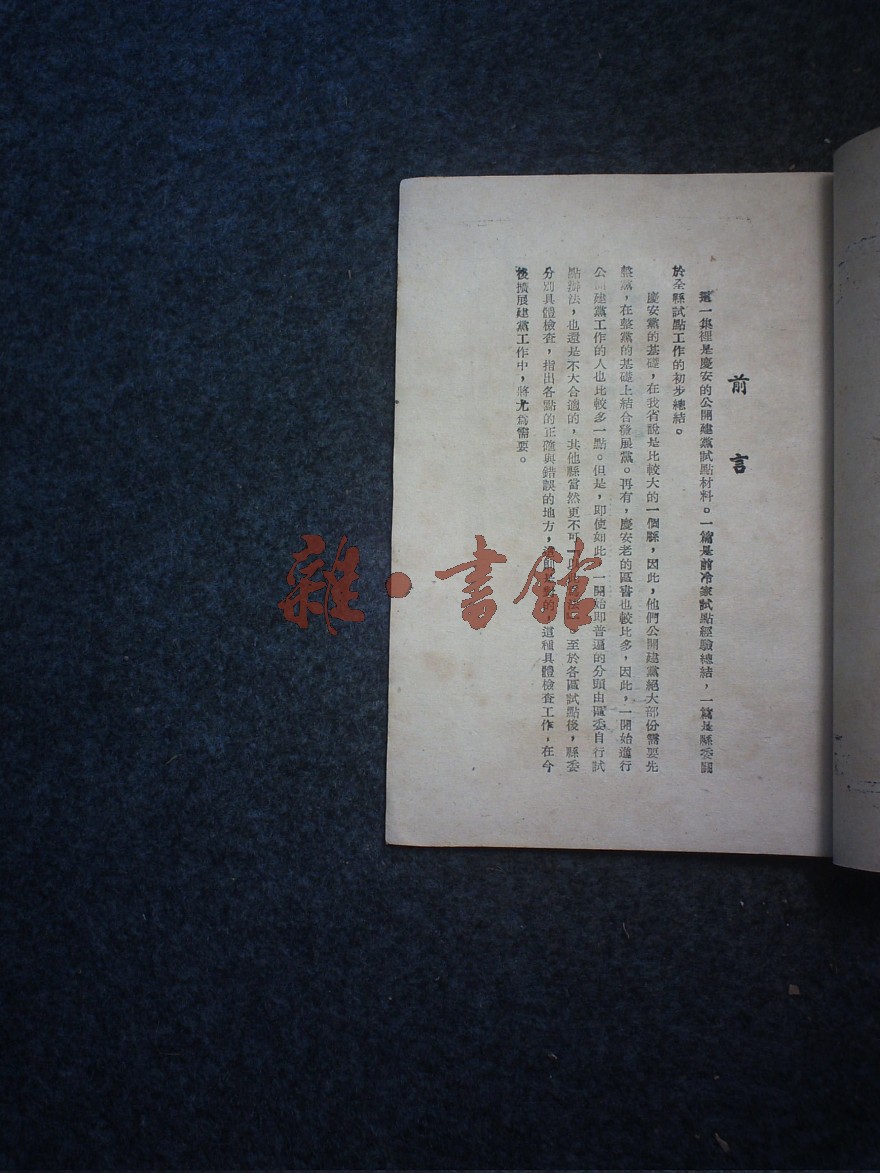 前言
這一集裡是慶安的公開建黨試點材料。一篇是前冷家試點經驗總結，一篇是縣委關
於全縣試點工作的初步總結。
慶安黨的基礎，在我省說是比較大的一個縣，因此，他們公開建黨絕大部份需要先
整黨，在整黨的基礎上結合發展黨。再有，慶安老的區書也較比多，因此，一開始進行
公開建黨工作的人也比較多一點。但是，即使如此，一開始即普遍的分頭由區委自行試
點辦法，也還是不大合適的，其他縣當然更不可 至於各區試點後，縣委
分別具體檢查，指出各點的正確與錯誤的地方， 這種具體檢查工作，在今
後擴展建黨工作中，將尤爲需要。
雜·書館